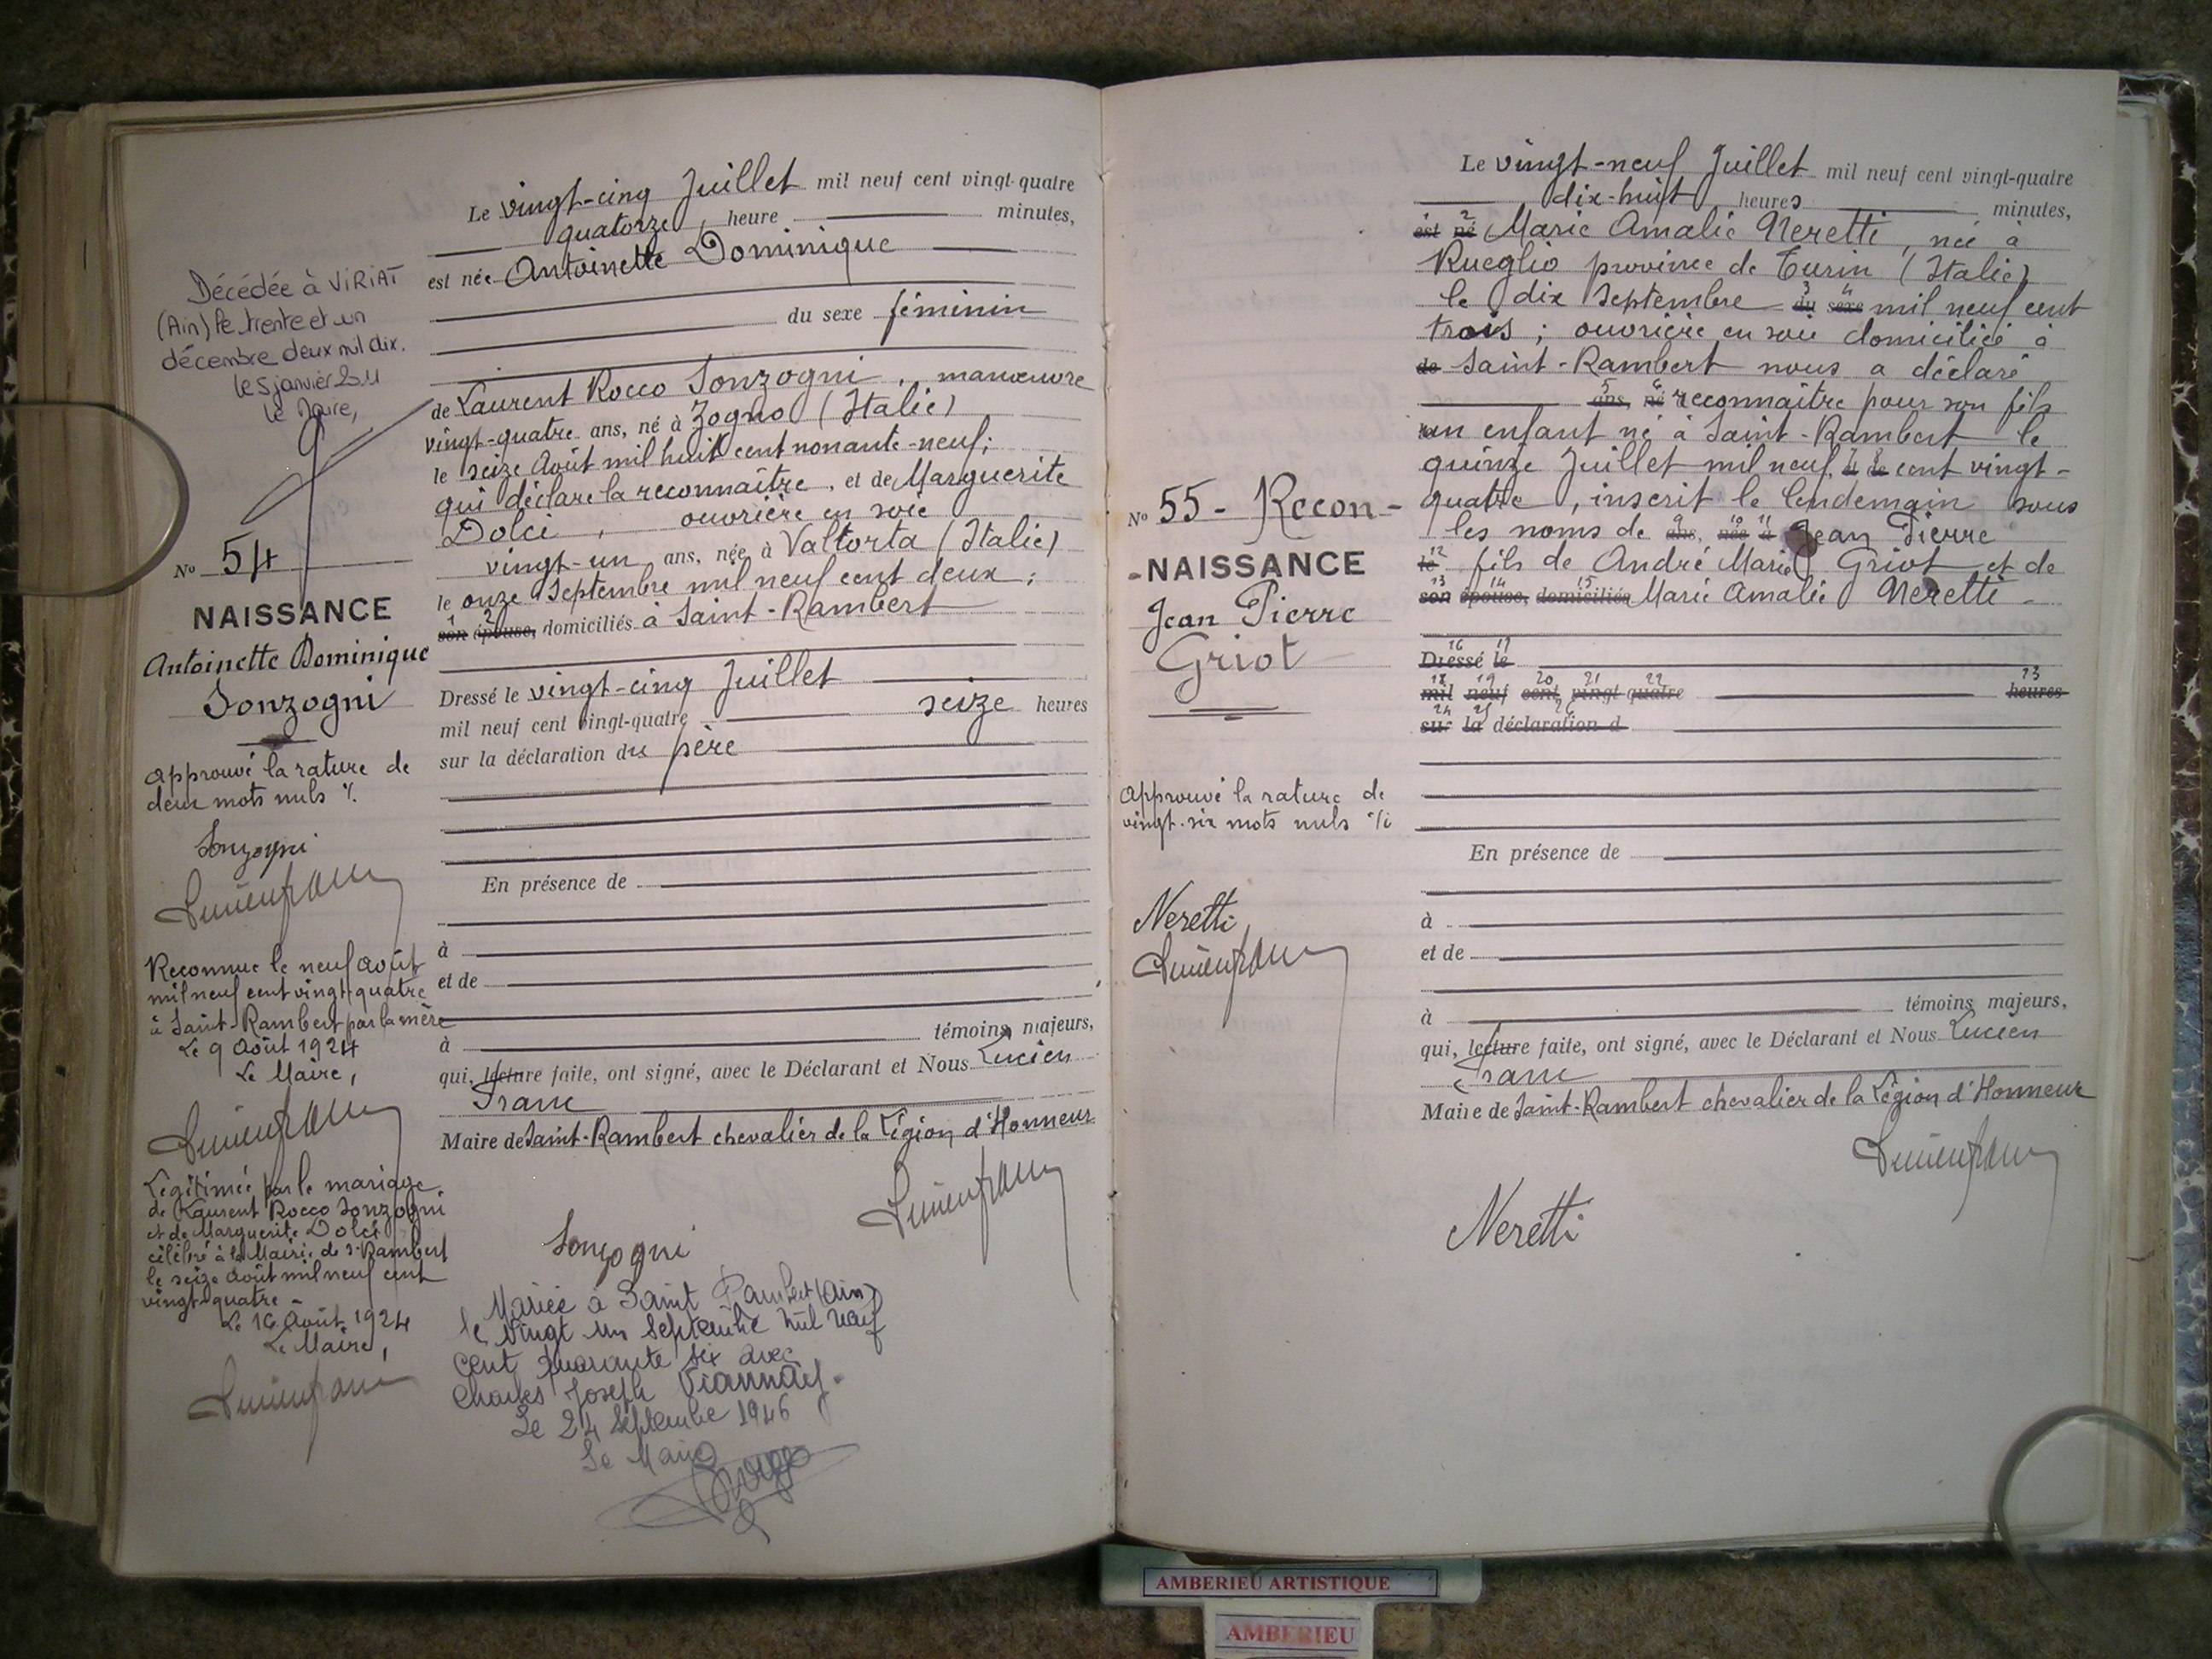 Le vingt-cinq Juillet mil neuf cent vingt-quatre
quatorze heure minutes,
est née Antoinette Dominique
du sexe féminin
de Laurent Rocco Sonzogni, manœuvre
vingt-quatre ans, né à Zogno (Italie)
le seize Août mil huit cent nonante-neuf;
qui déclare la reconnaître, et de Marguerite
Dolci, ouvrière en soie
vingt-un ans, née à Valtorta (Italie)
le onze Septembre mil neuf cent deux;
1 2
son épouse, domiciliés à Saint-Rambert
Dressé le vingt-cinq Juillet
mil neuf cent vingt-quatre seize heures
sur la déclaration du père
En présence de
à
et de
à témoins majeurs,
qui, lecture faite, ont signé, avec le Déclarant et Nous Lucien
Franc
Maire de Saint-Rambert chevalier de la Légion d'Honneur
Sonzogni
Mariée à Saint Rambert (Ain)
le vingt un Septembre mil neuf
cent quarante six avec
Charles Joseph
Le 24 Septembre 1946
Le Maire
Décédée à VIRIAT
(Ain) le trente et un
décembre deux mil dix.
le 5 janvier 2011
Le Maire,
No 54
NAISSANCE
Antoinette Dominique
Sonzogni
Approuvé la rature de
deux mots nuls %.
Sonzogni
Reconnue le neuf août
mil neuf cent vingt-quatre
à Saint-Rambert par la mère
Le 9 Août 1924
Le Maire,
Légitimée par le mariage
de Laurent Rocco Sonzogni
et de Marguerite Dolci
célébré à la Mairie de St-Rambert
le seize Août mil neuf cent
vingt-quatre -
Le 16 Août 1924
Le Maire,
Le vingt-neuf Juillet mil neuf cent vingt-quatre
dix-huit heures minutes,
1 2
est né Marie Amalie Neretti, née à
Rueglio province de Turin (Italie)
3 4
le dix Septembre du sexe mil neuf cent
trois; ouvrière en soie domiciliée à
de Saint-Rambert nous a déclaré
5 6
ans, né reconnaître pour son fils
un enfant né à Saint-Rambert le
7 8
quinze Juillet mil neuf, à de cent vingt-
quatre, inscrit le lendemain sous
9 10 11
les noms de ans, née à Jean Pierre
12
le fils de André Marie Griot et de
13 14 15
son épouse, domiciliés Marie Amalie Neretti -
16 17
Dressé le
18 19 20 21 22 23
mil neuf cent vingt quatre heures
24 25 26
sur la déclaration d
En présence de
à
et de
à témoins majeurs,
qui, lecture faite, ont signé, avec le Déclarant et Nous Lucien
Franc
Maire de Saint-Rambert chevalier de la Légion d'Honneur
Neretti
No 55 - Recon-
-NAISSANCE
Jean Pierre
Griot
Approuvé la rature de
vingt-six mots nuls %
Neretti
AMBERIEU ARTISTIQUE
AMBERIEU